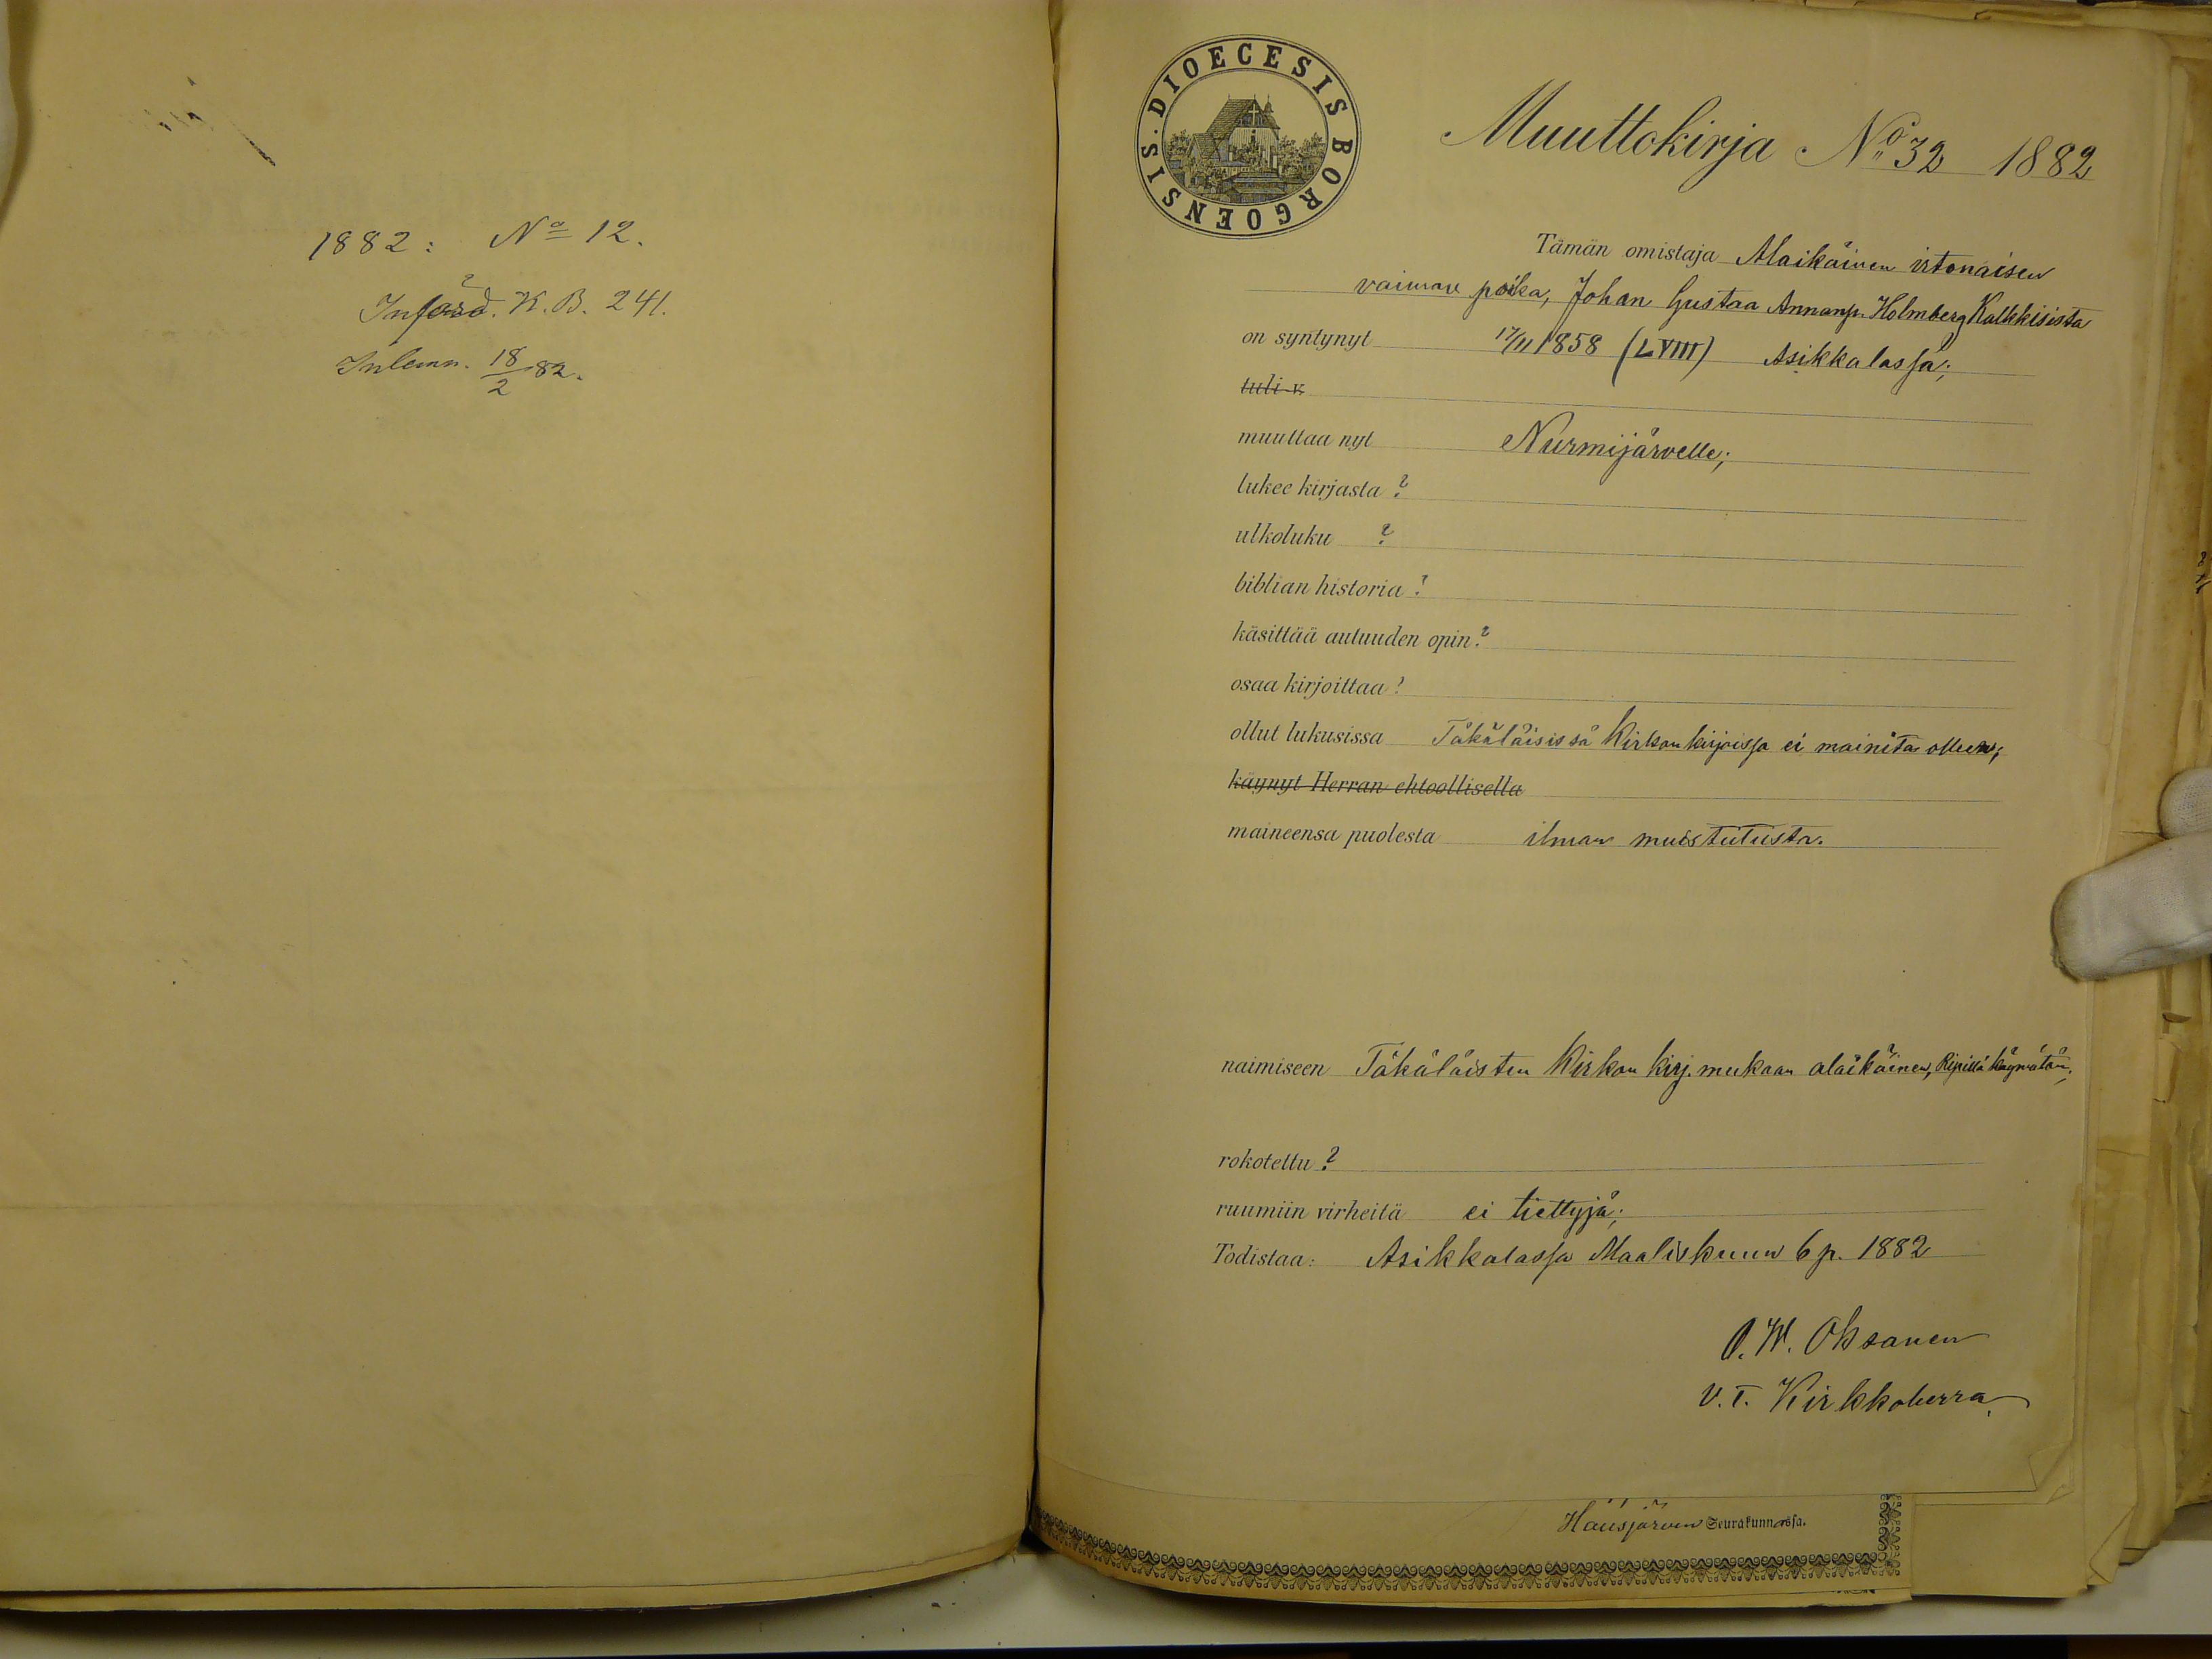 1882: No 12.
Införd. K.B. 241.
Inlemn. 18/2 82.
DIOECESIS BORGOENSIS.
Muuttokirja No 32 1882
Tämän omistaja Alaikäinen irtonaisen
vaimon poika, Johan Gustaa Annanp. Holmberg Kalkkisista
on syntynyt 17/11 1858 (LVIII) Asikkalassa;
tuli v.
muuttaa nyt Nurmijärvelle;
lukee kirjasta ?
ulkoluku ?
biblian historia ?
käsittää autuuden opin ?
osaa kirjoittaa ?
ollut lukusissa Täkäläisissä Kirkon kirjoissa ei mainita olleen;
käynyt Herran ehtoollisella
maineensa puolesta ilman muistutusta.
naimiseen Täkäläisten Kirkon Kirj. mukaan alaikäinen, Ripillä käymätön;
rokotettu ?
ruumiin virheitä ei tiettyjä;
Todistaa: Asikkalassa Maaliskuun 6 p. 1882
O. W. Oksanen
V. T. Kirkkoherra
Hausjärven Seurakunnassa.